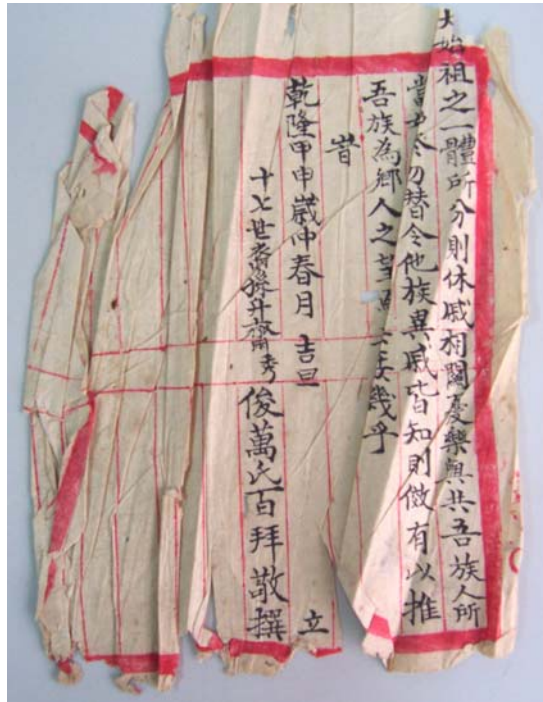 大始祖之一體所分則休戚相關憂樂與共吾族人所
當 勿替令他族異戚皆知則倣有以推
吾族為鄉人之望 幾乎
旹
乾隆甲申歲中春月 吉旦 立
十七世裔孫升齋秀 俊萬氏百拜敬撰